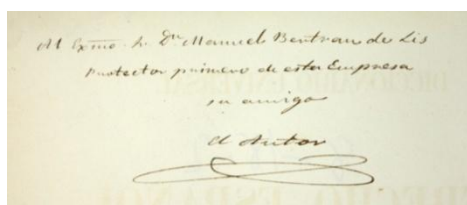 Al Exmo. Sr. Dn. Manuel Bertran de Lis
Protector primero de esta Empresa
su amigo
el Autor